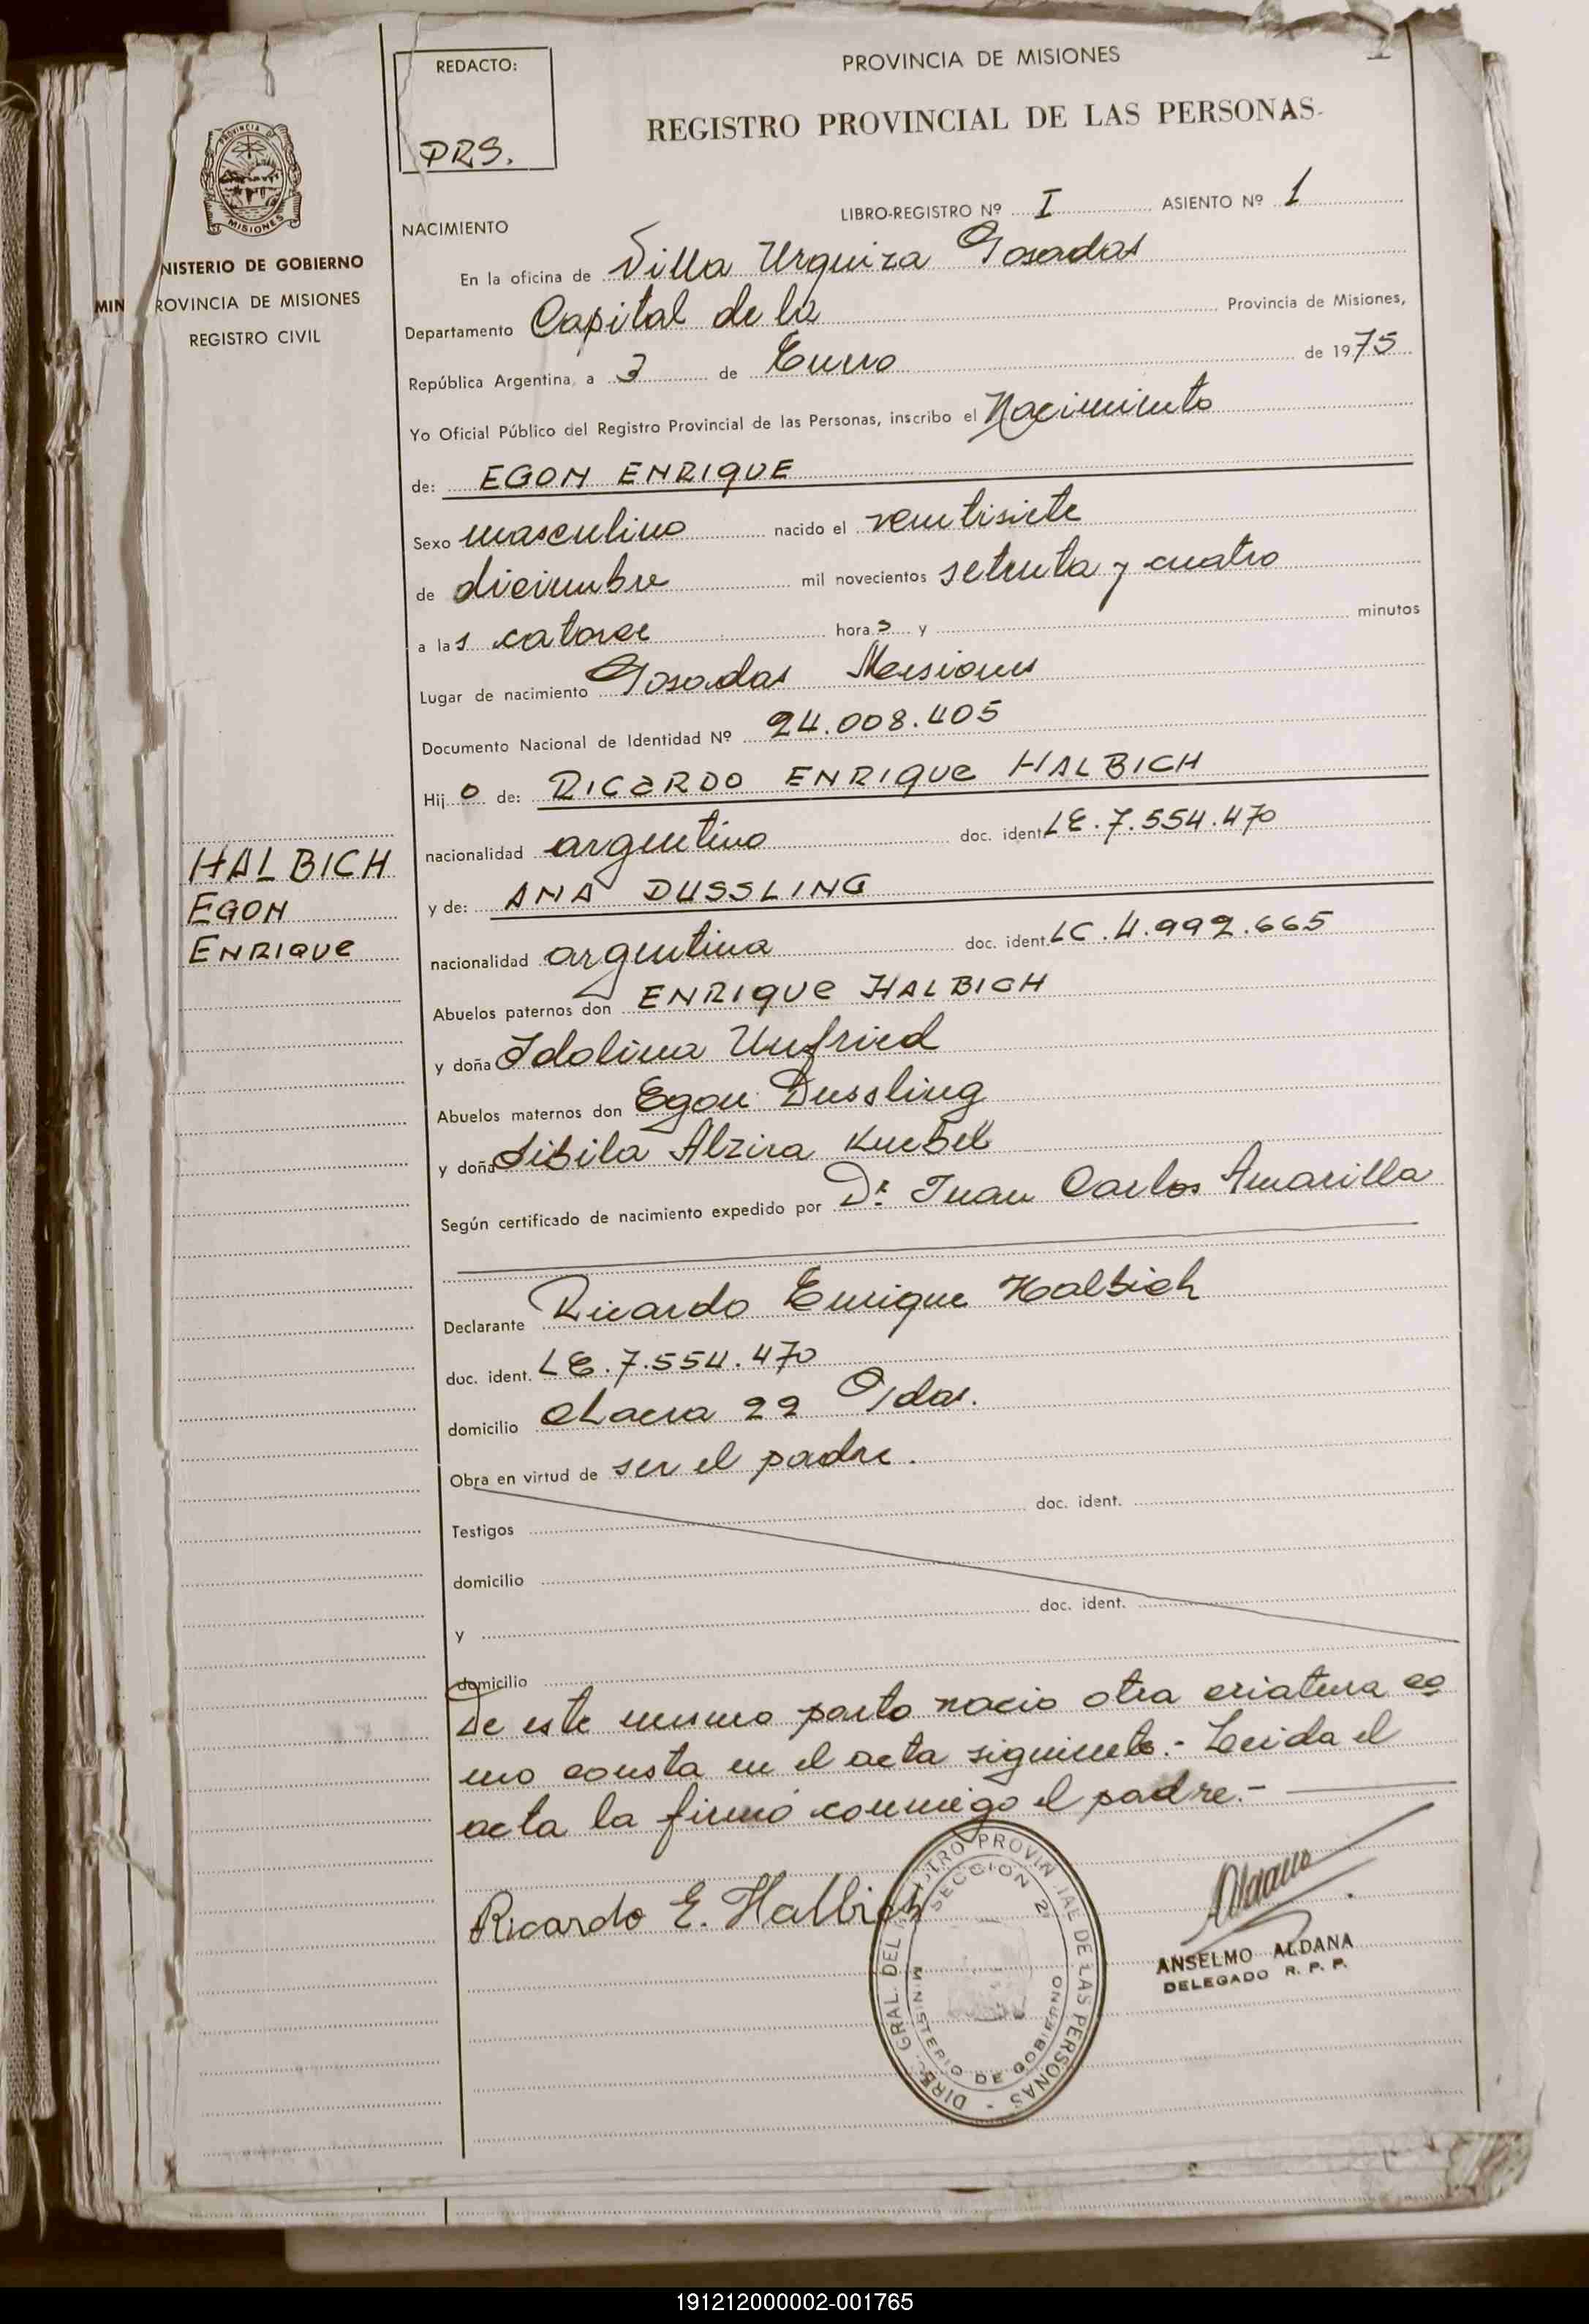 REDACTO:
PRS.
PROVINCIA DE MISIONES
REGISTRO PROVINCIAL DE LAS PERSONAS-
PROVINCIA DE
MISIONES
NISTERIO DE GOBIERNO
MIN ROVINCIA DE MISIONES
REGISTRO CIVIL
NACIMIENTO
LIBRO-REGISTRO Nº I ASIENTO Nº 1
En la oficina de Villa Urquiza Posadas
Departamento Capital de la Provincia de Misiones,
República Argentina, a 3 de Enero de 1975
Yo Oficial Público del Registro Provincial de las Personas, inscribo el Nacimiento
de: EGON ENRIQUE
Sexo masculino nacido el veintisiete
de diciembre mil novecientos setenta y cuatro
a las catorce horas y minutos
Lugar de nacimiento Posadas Misiones
Documento Nacional de Identidad Nº 24.008.405
Hijo de: RICARDO ENRIQUE HALBICH
nacionalidad argentino doc. ident. LE.7.554.470
y de: ANA DUSSLING
nacionalidad argentina doc. ident. LC.4.992.665
HALBICH
EGON
ENRIQUE
Abuelos paternos don ENRIQUE HALBICH
y doña Idolina Unfried
Abuelos maternos don Egon Dussling
y doña Sibila Alzira Kuebel
Según certificado de nacimiento expedido por Dr. Juan Carlos Amarilla
Declarante Ricardo Enrique Halbich
doc. ident. LE.7.554.470
domicilio Chacra 22 Pdas.
Obra en virtud de ser el padre.
Testigos doc. ident.
domicilio
y doc. ident.
domicilio
De este mismo parto nacio otra criatura co
mo consta en el acta siguiente.- Leida el
acta la firmó conmigo el padre.-
Ricardo E. Halbich
DIREC. GRAL. DEL REGISTRO PROVINCIAL DE LAS PERSONAS -
SECCION 2ª
MINISTERIO DE GOBIERNO
Aldana
ANSELMO ALDANA
DELEGADO R. P. P.
191212000002-001765